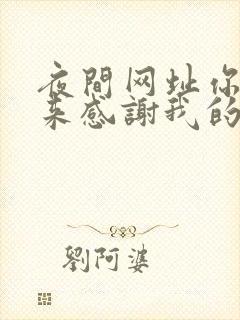 夜間网址你
来感謝我的
劉阿婆